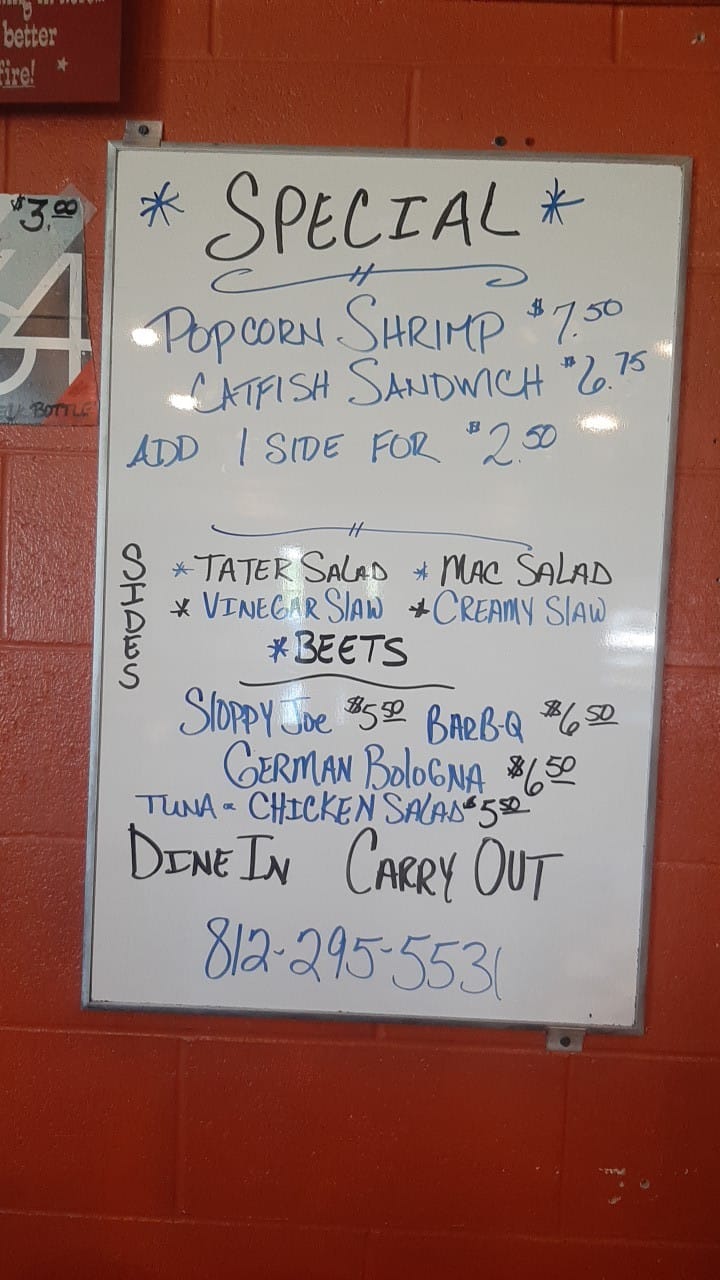 better
fire!
$3.00
* SPECIAL *
POPCORN SHRIMP $7.50
CATFISH SANDWICH $6.75
ADD 1 SIDE FOR $2.50
SIDES
* TATER SALAD * MAC SALAD
* VINEGAR SLAW * CREAMY SLAW
* BEETS
SLOPPY JOE $5.50 BARB-Q $6.50
GERMAN BOLOGNA $6.50
TUNA - CHICKEN SALAD $5.50
DINE IN CARRY OUT
812-295-5531
BOTTLE